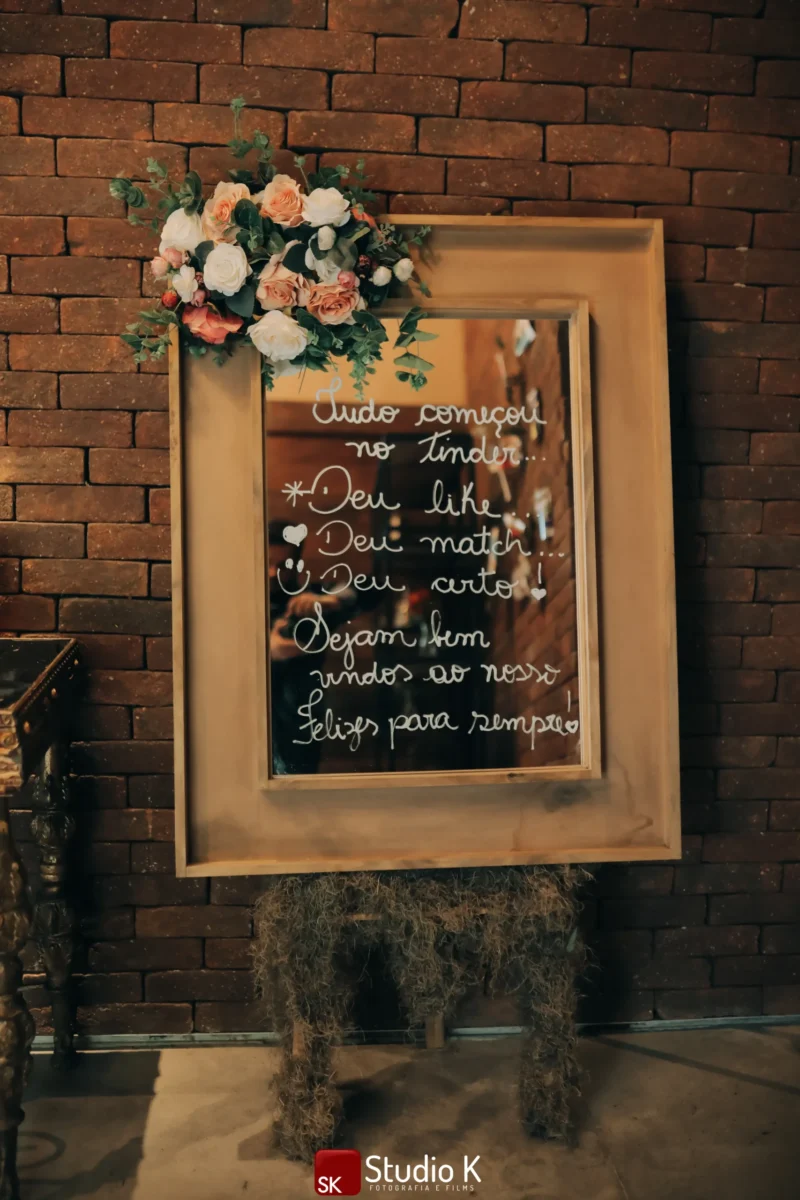 Tudo começou
no tinder...
Deu like...
Deu match...
Deu certo!
Sejam bem
vindos ao nosso
Felizes para sempre!
SK Studio K
FOTOGRAFIA E FILMS